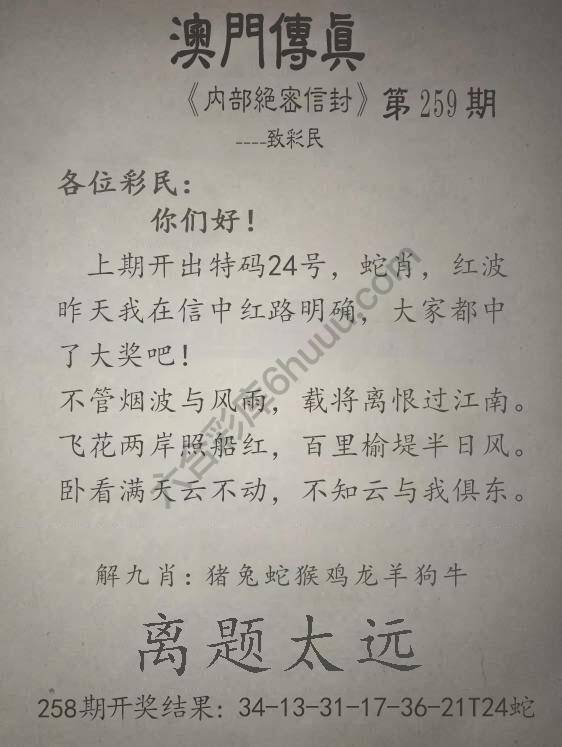 澳門傳眞
《内部絕密信封》第259期
----致彩民
各位彩民：
你们好！
上期开出特码24号，蛇肖，红波
昨天我在信中红路明确，大家都中
了大奖吧！
不管烟波与风雨，载将离恨过江南。
飞花两岸照船红，百里榆堤半日风。
卧看满天云不动，不知云与我俱东。
解九肖：猪兔蛇猴鸡龙羊狗牛
离题太远
258期开奖结果：34-13-31-17-36-21T24蛇
六合彩库6huuu.com